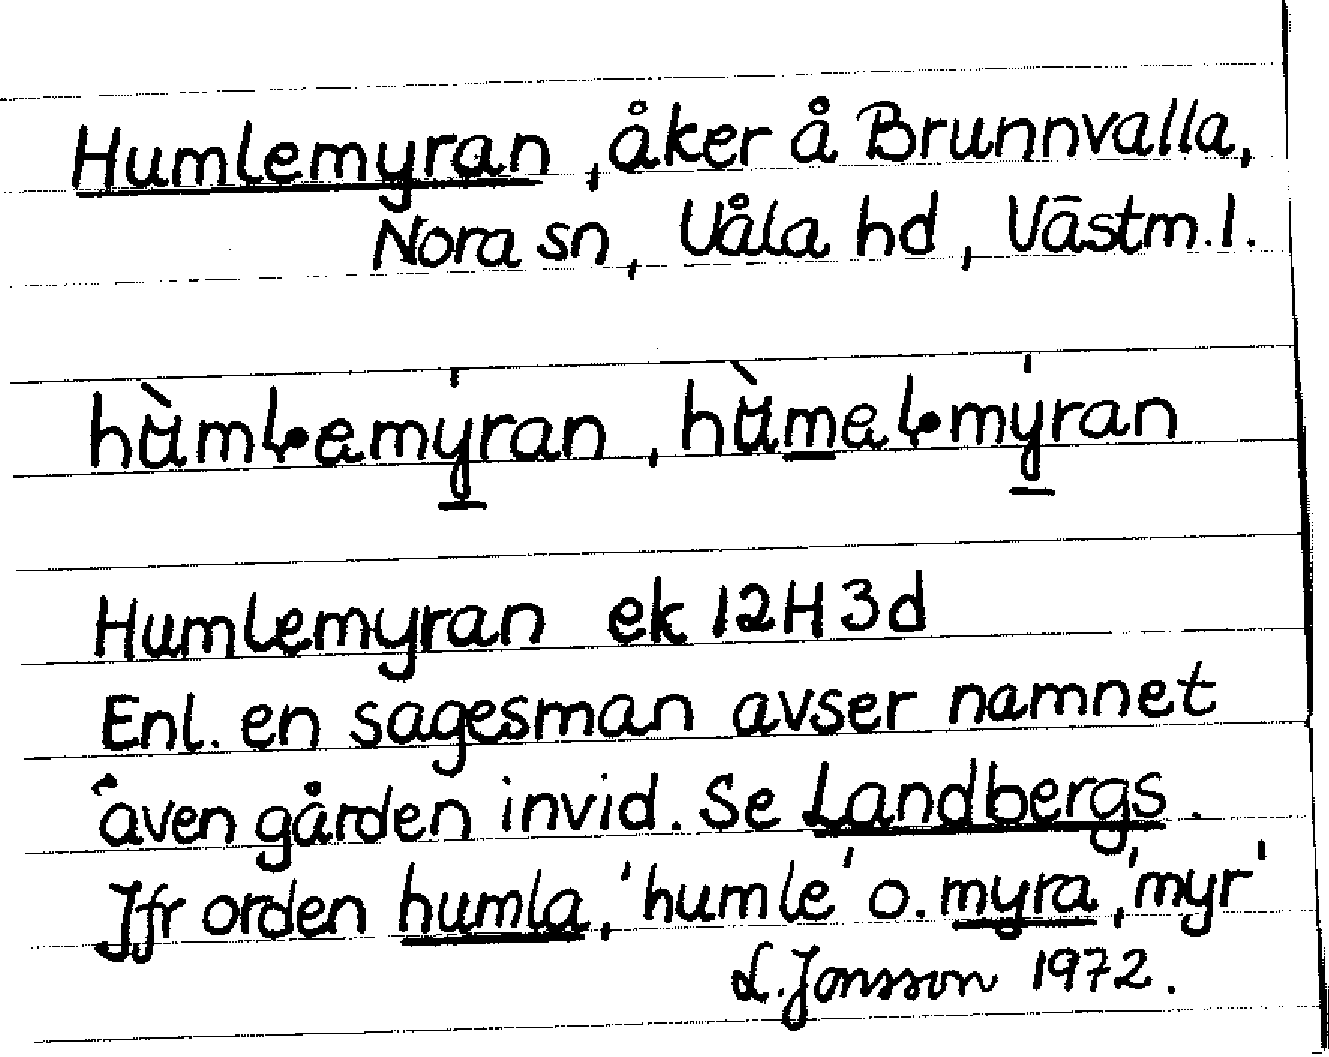 Humlemyran, åker å Brunnvalla,
Nora sn, Våla hd, Västm.l.
Humlemyran ek 12H3d
Enl. en sagesman avser namnet
även gården invid. Se Landbergs.
Jfr orden humla, 'humle' o. myra, 'myr'
L. Jonsson 1972.